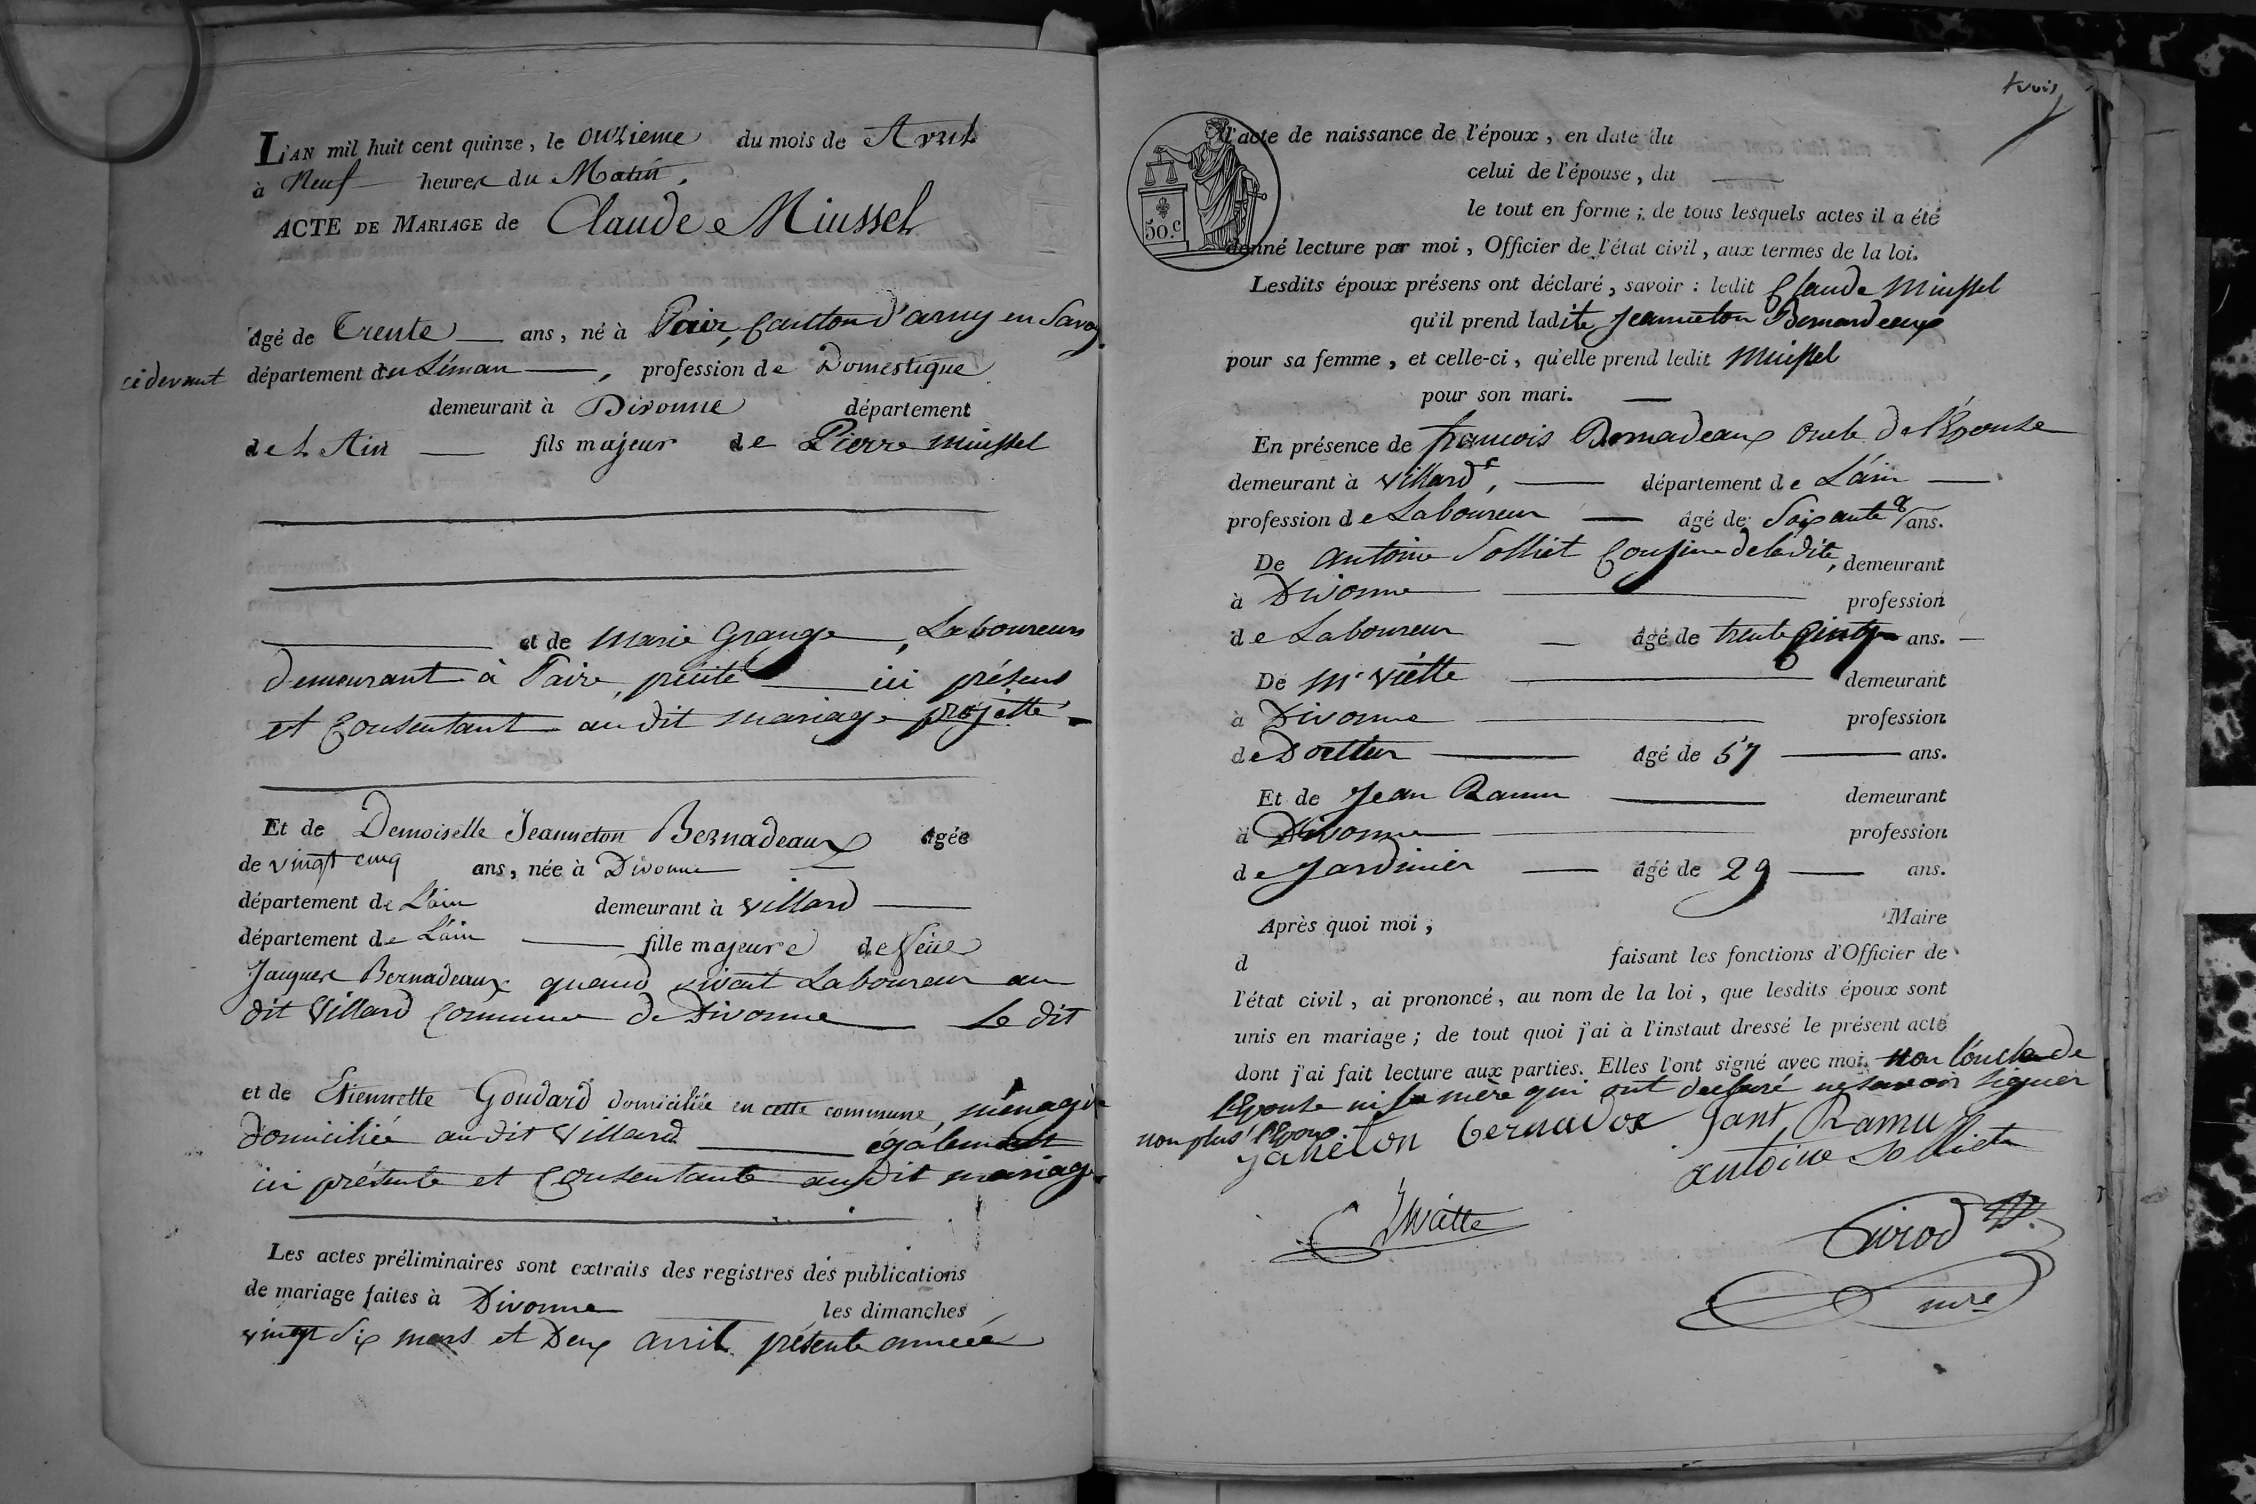 L'AN mil huit cent quinze, le onzieme du mois de Avril
à Neuf heures du Matin.
ACTE DE MARIAGE de Claude Miussel
âgé de Trente ans, né à canton d'arny en Savoy
ci devant département du Léman, profession de Domestique
demeurant à Divonne département
de L Ain fils majeur de Pierre miussel
et de marie Grange, Laboureurs
demeurant à ici présens
et Consentant au dit mariage projetté
Et de Demoiselle Jeanneton Bernadeaux âgée
de vingt cinq ans, née à Divonne
département de L'ain demeurant à villard
département de L'ain fille majeure de feu
Jacques Bernadeaux quand vivait Laboureur au
dit Villard Commune de Divonne Le dit
et de Etiennette Goudard domiciliée en cette commune, ménagère
domiciliée au dit Villard également
ici présente et Consentante au dit mariage
Les actes préliminaires sont extraits des registres des publications
de mariage faites à Divonne les dimanches
vingt six mars et Deux avril présente année
trois
50.c
l'acte de naissance de l'époux, en date du
celui de l'épouse, du
le tout en forme; de tous lesquels actes il a été
donné lecture par moi, Officier de l'état civil, aux termes de la loi.
Lesdits époux présens ont déclaré, savoir: ledit Claude Miussel
qu'il prend ladite Jeanneton Bernardeaux
pour sa femme, et celle-ci, qu'elle prend ledit Miussel
pour son mari.
En présence de francois Bernadeaux oncle de l'Epouse
demeurant à villard, département de L'ain
profession de Laboureur âgé de Soixante 8 ans.
De antoine Solliet Cousin de ladite, demeurant
à Divonne profession
de Laboureur âgé de trente cinq ans.
De Mr viette demeurant
à Divonne profession
de Docteur âgé de 57 ans.
Et de Jean Ramu demeurant
à Divonne profession
de Jardinier âgé de 29 ans.
Après quoi moi, Maire
d faisant les fonctions d'Officier de
l'état civil, ai prononcé, au nom de la loi, que lesdits époux sont
unis en mariage; de tout quoi j'ai à l'instant dressé le présent acte
dont j'ai fait lecture aux parties. Elles l'ont signé avec moi, non l'oncle de
l'Epouse ni sa mère qui ont declaré ne savoir signer
non plus l'Epoux.
janeton bernadox Jant Ramu
antoine Solliet
Girod
mre